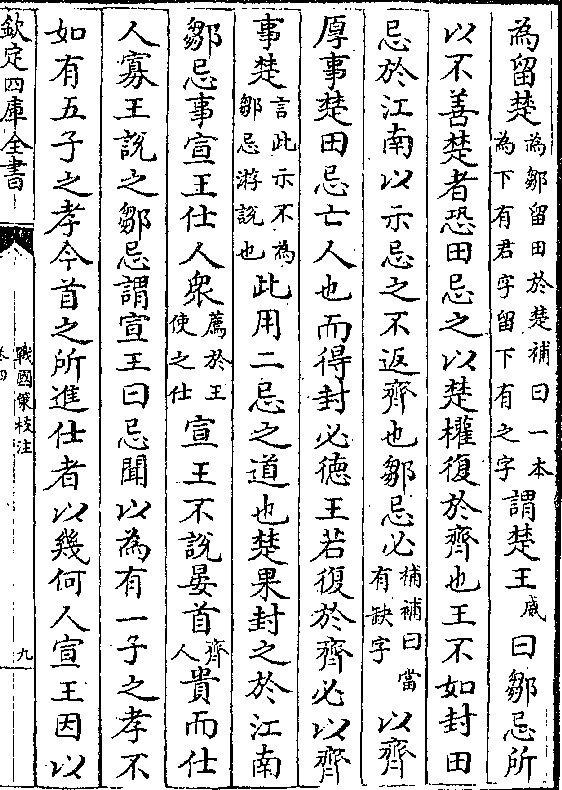 為留楚為鄒留田於楚補曰一本為下有君字留下有之字謂楚王威曰鄒忌所
以不善楚者恐田忌之以楚權復於齊也王不如封田
忌於江南以示忌之不返齊也鄒忌必補補曰當有缺字以齊
厚事楚田忌亡人也而得封必德王若復於齊必以齊
事楚言此示不為鄒忌游說也此用二忌之道也楚果封之於江南
鄒忌事宣王仕人衆薦於王使之仕宣王不說晏首齊人貴而仕
人寡王說之鄒忌謂宣王曰忌聞以為有一子之孝不
如有五子之孝今首之所進仕者以幾何人宣王因以
欽定四庫全書
戰國策校注
卷四
九